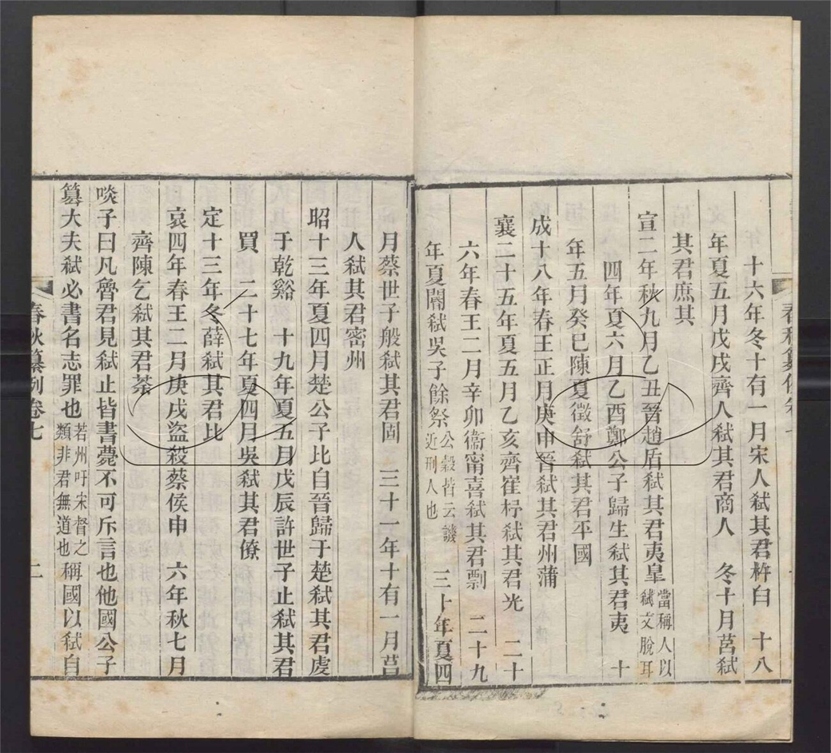 十六年冬十有一月宋人弒其君杵臼　十八
年夏五月戊戌齊人弒其君商人　冬十月莒弒
其君庶其
宣二年秋九月乙丑晉趙盾弒其君夷皐當稱人以弒文脫耳
四年夏六月乙酉鄭公子歸生弒其君夷　十
年五月癸巳陳夏徵舒弒其君平國
成十八年春王正月庚申晉弒其君州蒲
襄二十五年夏五月乙亥齊崔杼弒其君光　二十
六年春王二月辛卯衞甯喜弒其君剽　二十九
年夏閽弒吳子餘祭公穀皆云譏近刑人也　三十年夏四
月蔡世子般弒其君固　三十一年十有一月莒
人弒其君密州
昭十三年夏四月楚公子比自晉歸于楚弒其君虔
于乾谿　十九年夏五月戊辰許世子止弒其君
買　二十七年夏四月吳弒其君僚
定十三年冬薛弒其君比
哀四年春王二月庚戌盜殺蔡侯申　六年秋七月
齊陳乞弒其君荼
啖子曰凡魯君見弒止皆書薨不可斥言也他國公子
簒大夫弒必書名志罪也若州吁宋督之類非君無道也稱國以弒自
春秋纂例卷七　二